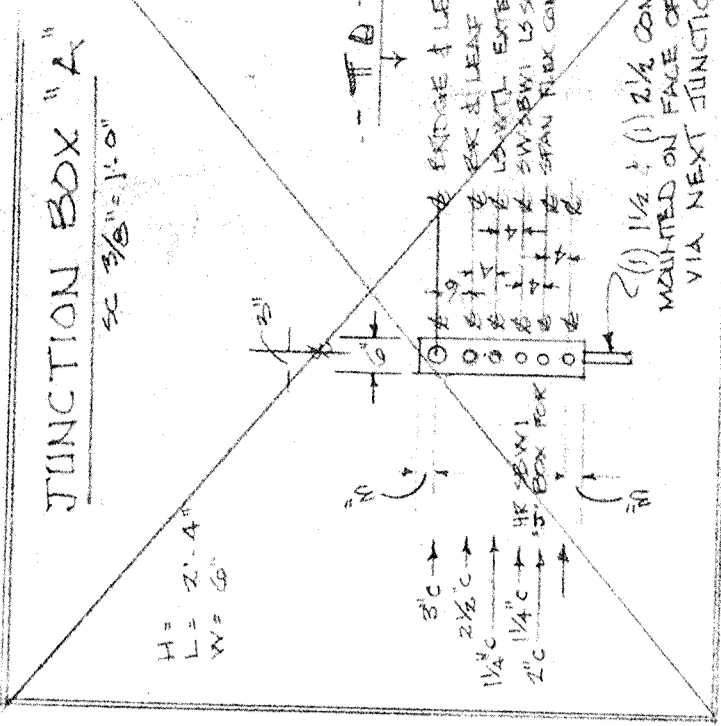 JUNCTION BOX "A"
SC 3/8" = 1'-0"
H =
L = 2'-4"
W = 6"
3"
6"
3"
3"
3"C
2 1/2"C
1 1/4"C
1 1/4"C
2"C
HR SBWI
"J" BOX FOR
6
BRIDGE & LE
BR & LEAF
LSWTL EXTE
SWSBWI LS S
SPAN FLEX CON
(1) 1 1/2 & (1) 2 1/2 CON
MOUNTED ON FACE OF
VIA NEXT JUNCTIO